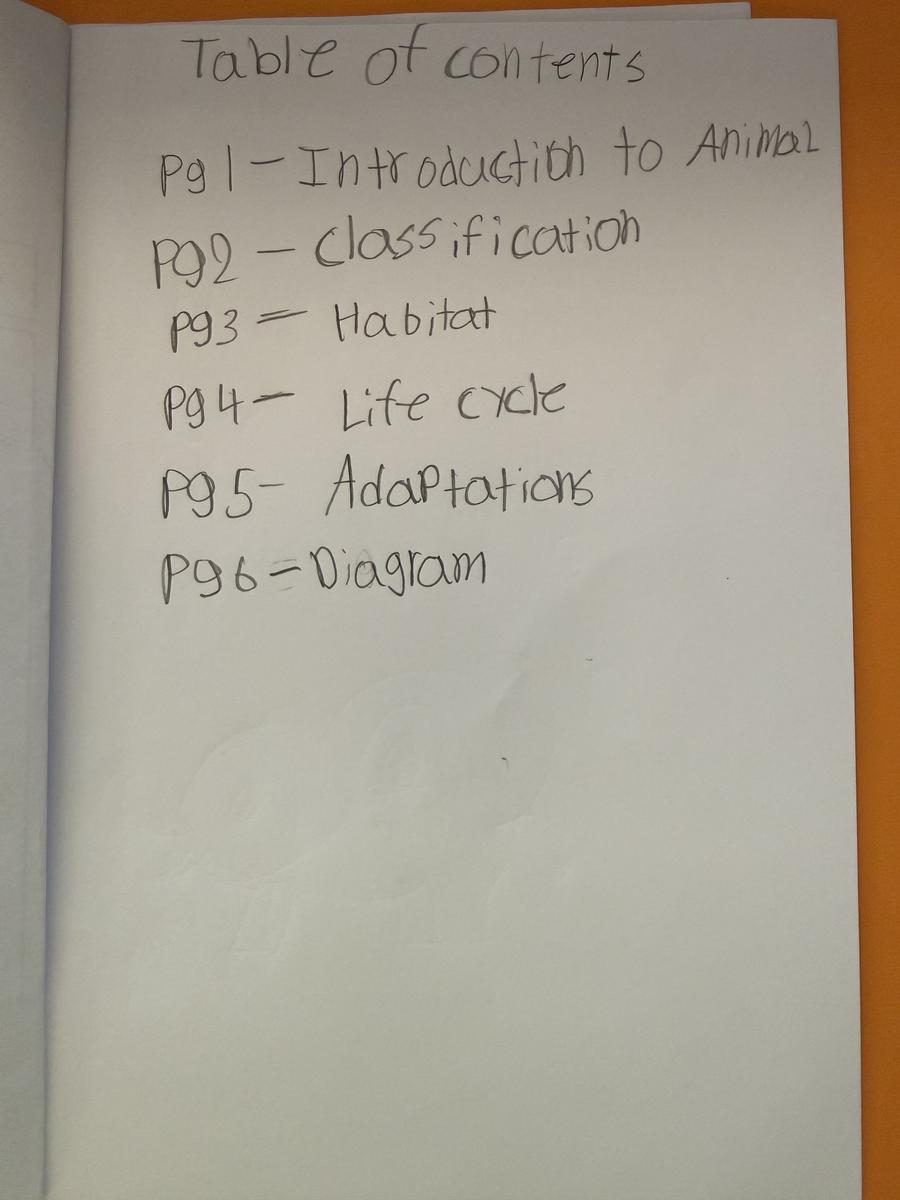 Table of contents
Pg 1 - Introduction to Animal
Pg2 - Classification
Pg3 = Habitat
Pg 4 - Life cycle
Pg 5 - Adaptations
Pg 6 - Diagram